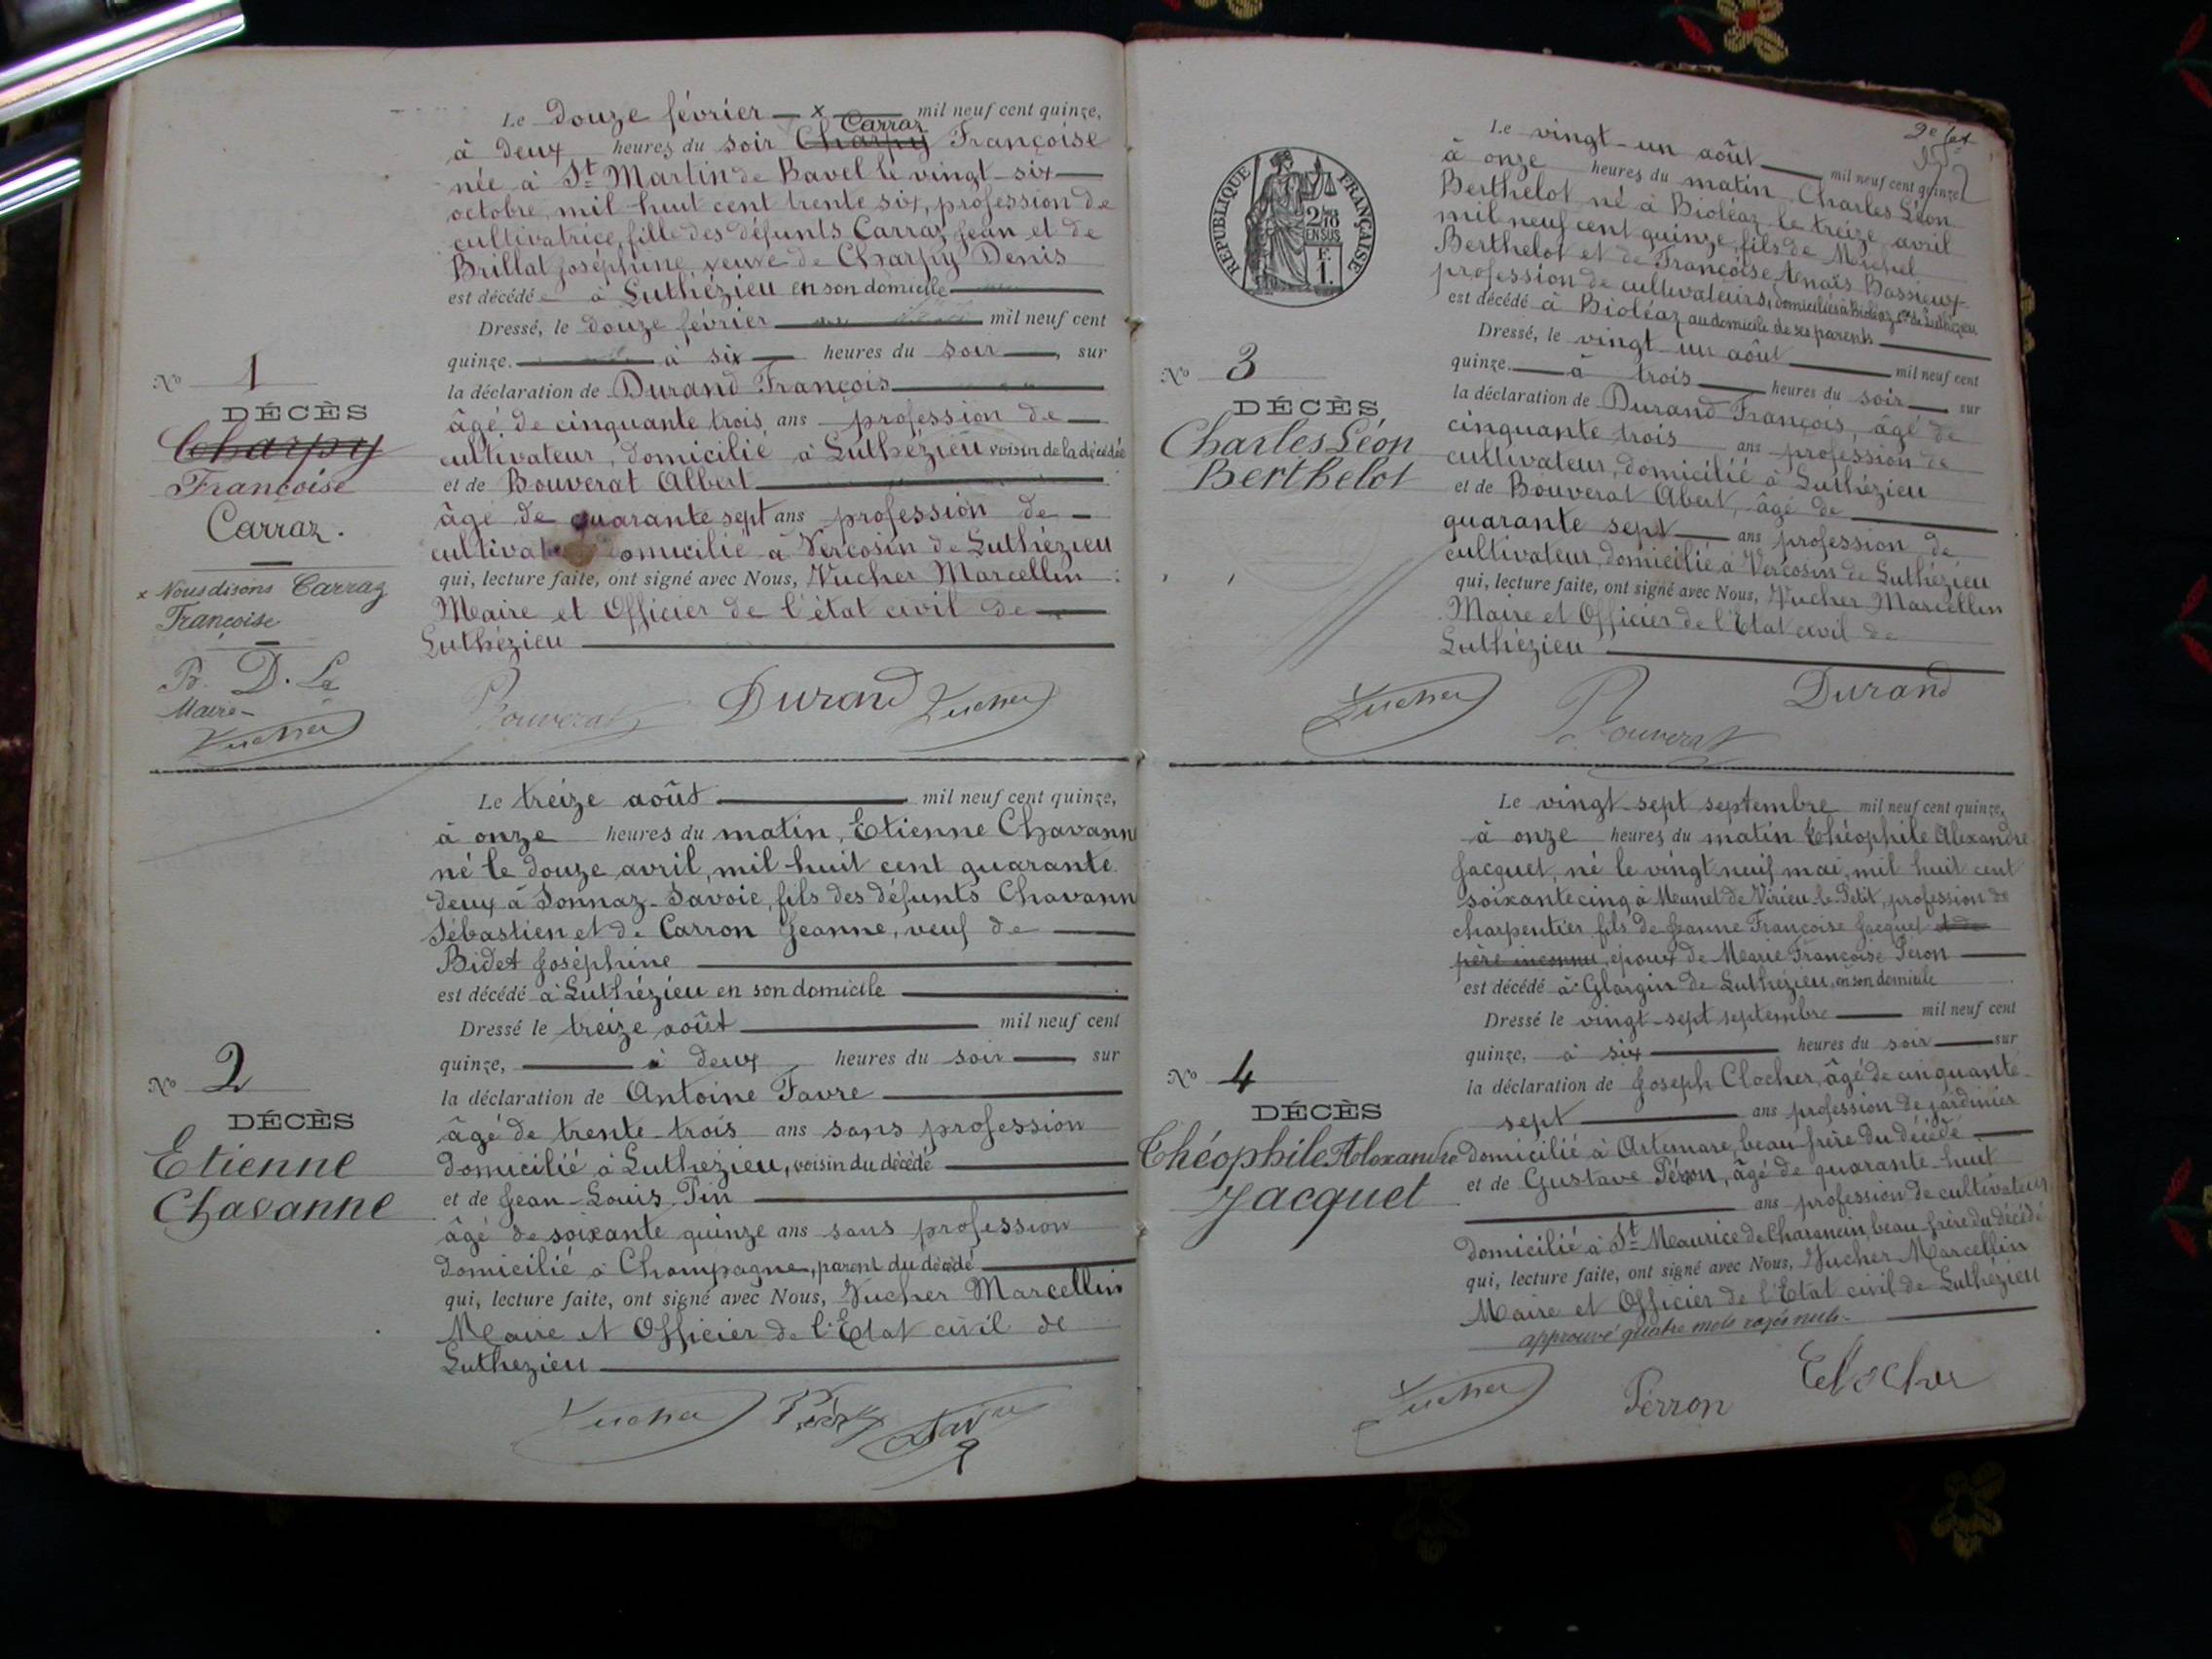 Le douze février — x — mil neuf cent quinze,
à deux heures du soir Charpy Carraz Françoise
née à St Martin de Bavel le vingt-six —
octobre mil huit cent trente six, profession de
cultivatrice, fille des défunts Carraz Jean et de
Brillat Joséphine veuve de Charpy Denis
est décédée à Luthézieu en son domicile —
Dressé, le douze février — mil neuf cent
quinze. — à six — heures du soir —, sur
la déclaration de Durand François —
âgé de cinquante trois ans profession de —
cultivateur, domicilié à Luthézieu voisin de la décédée
et de Bouverat Albert —
âgé de quarante sept ans profession de —
domicilié à Vercosin de Luthézieu
qui, lecture faite, ont signé avec Nous, Vucher Marcellin
Maire et Officier de l'état civil de —
Luthézieu —
No 1
DÉCÈS
Charpy
Françoise
Carraz.
x Nous disons Carraz
Françoise
Maire
Vucher
Bouverat Durand Vucher
Le treize août — mil neuf cent quinze,
à onze heures du matin, Etienne Chavann
né le douze avril, mil huit cent quarante
deux à Sonnaz-Savoie, fils des défunts Chavann
Sébastien et de Carron Jeanne, veuf de —
Bidet Joséphine —
est décédé à Luthézieu en son domicile —
Dressé le treize août — mil neuf cent
quinze, — à deux heures du soir —, sur
la déclaration de Antoine Favre —
âgé de trente-trois ans sans profession
domicilié à Luthezieu, voisin du décédé —
et de Jean-Louis Pin —
âgé de soixante quinze ans sans profession
domicilié à Champagne, parent du décédé —
qui, lecture faite, ont signé avec Nous, Vucher Marcellin
Maire et Officier de l'Etat civil de
Luthezieu —
No 2
DÉCÈS
Etienne
Chavanne
Vucher
2e fet
Le vingt-un août — mil neuf cent quinze
à onze heures du matin Charles Léon
Berthelot né à Bioléaz le treize avril
mil neuf cent quinze, fils de Michel
Berthelot et de Françoise Bassieux
profession de cultivateurs, domiciliés à Bioléaz, Cne de Luthézieu
est décédé à Bioléaz au domicile de ses parents —
Dressé, le vingt-un août — mil neuf cent
quinze. — à trois — heures du soir — sur
la déclaration de Durand François, âgé de
cinquante trois ans profession de
cultivateur, domicilié à Luthézieu
et de Bouverat Abert, âgé de —
quarante sept — ans profession de
cultivateur, domicilié à Vercosin de Luthézieu
qui, lecture faite, ont signé avec Nous, Vucher Marcellin
Maire et Officier de l'Etat civil de
Luthézieu —
RÉPUBLIQUE FRANÇAISE
2/10
EN SUS
F.
1.
No 3
DÉCÈS
Charles Léon
Berthelot
Vucher Bouverat Durand
Le vingt-sept septembre mil neuf cent quinze,
à onze heures du matin Théophile Alexandre
Jacquet, né le vingt neuf mai, mil huit cent
soixante cinq à Munet de Virieu-le-Petit, profession de
charpentier fils de Jeanne Françoise Jacquet et de
père inconnu, époux de Marie Françoise Péron —
est décédé à Glargin de Luthézieu, en son domicile
Dressé le vingt-sept septembre — mil neuf cent
quinze, à six — heures du soir — sur
la déclaration de Joseph Clocher, âgé de cinquante-
sept — ans profession de jardinier
domicilié à Artemare, beau-frère du décédé —
et de Gustave Péron, âgé de quarante-huit
— ans profession de cultivateur
domicilié à St Maurice de Charancin, beau-frère du décédé
qui, lecture faite, ont signé avec Nous, Vucher Marcellin
Maire et Officier de l'Etat civil de Luthézieu
approuvé quatre mots rayés nuls. —
No 4
DÉCÈS
Théophile Alexandre
Jacquet
Vucher Perron Clocher